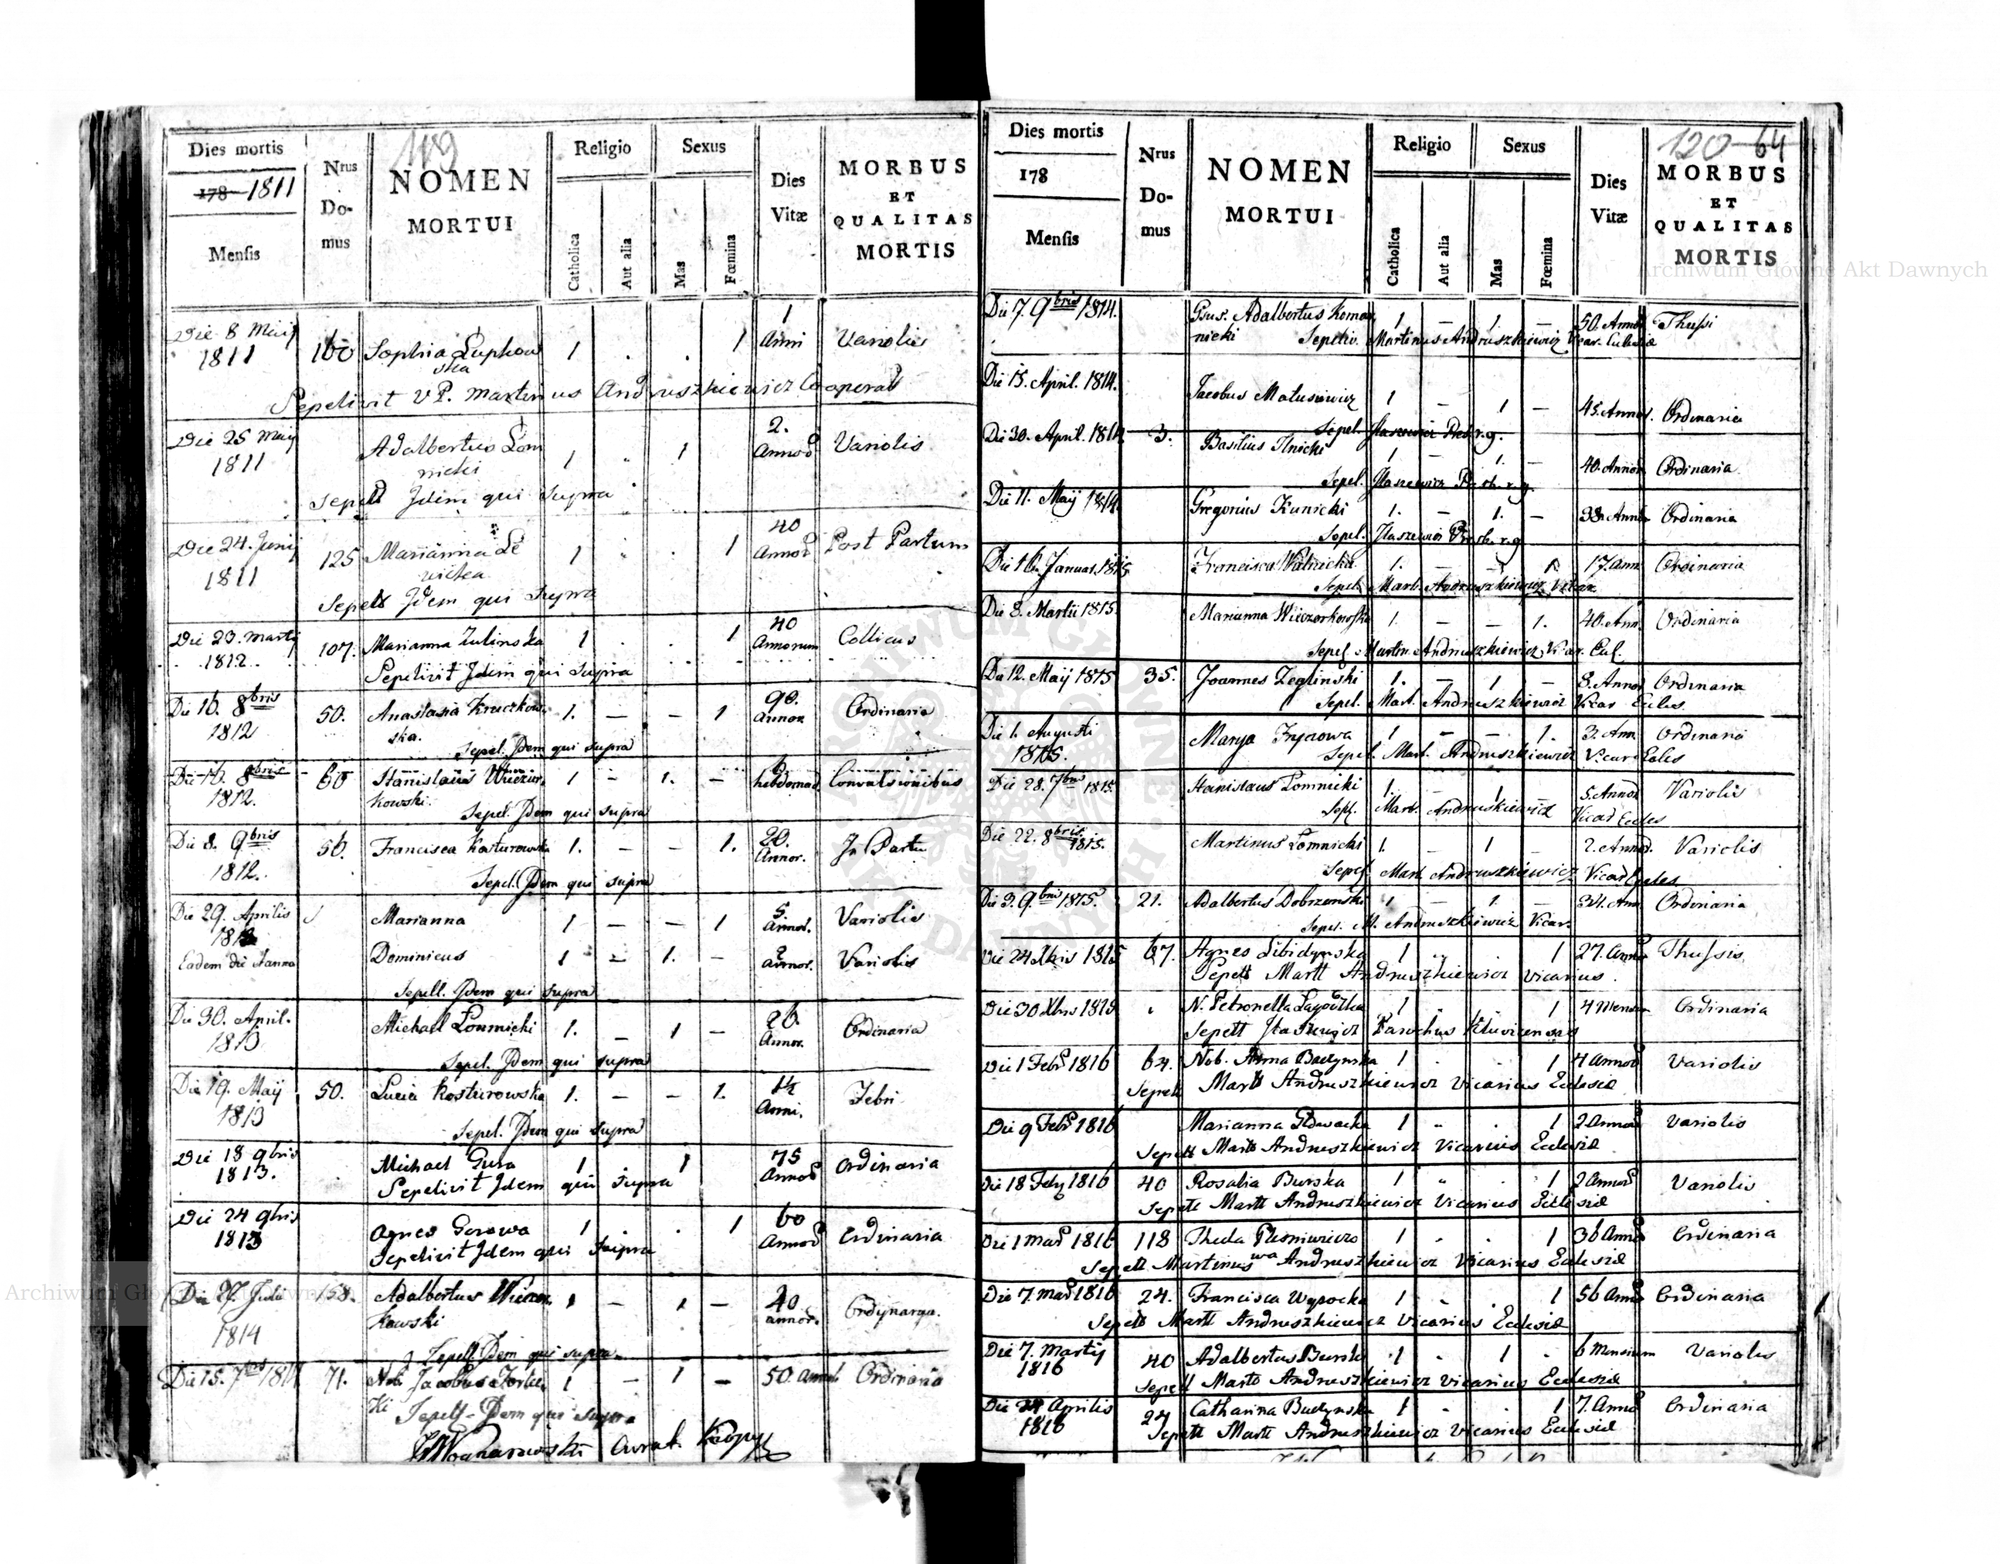 119
Dies mortis
178 1811
Mensis
Nrus
Do-
mus
NOMEN
MORTUI
Religio
Catholica
Aut alia
Sexus
Mas
Fœmina
Dies
Vitæ
MORBUS
ET
QUALITAS
MORTIS
Die 8 Maij 1 
1811 100 Sophia Luphow 1 . . 1 Anni Variolis
ska
Sepelivit VP. Martinus Andruszkiewicz Cooperat
Die 25 Maij 2.
1811 Adalbertus Lom 1 1 Annor Variolis
nicki
Sepelt Idem qui supra
Die 24. Junij 40
1811 125 Marianna 1 . . 1 Annor Post Partum
Sepelt Idem qui supra
Die 23. Martij 40
1812 107. Marianna Zulinska 1 . . 1 Annorum Collicus
Sepelivit Idem qui supra
Die 16. 8bris 90.
1812 50. Anastasia Kruczkow 1. — — 1 Annor. Ordinaria
ska. Sepel. Idem qui supra
Die 8bris 6
1812. 60 Stanislaus Wieczor 1 — 1. — hebdomad. Convulsionibus
kowski. Sepel. Idem qui supra
Die 8. 9bris 20.
1812. 56. Francisca Kosturowska 1. — — 1. Annor. In Partu
Sepel. Idem qui supra
Die 29. Aprilis 5.
Marianna 1 — — 1 Annor. Variolis
Eadem die Dominicus 1 — 1. — Annor. Variolis
Sepell. Idem qui supra
Die 30. April. 26.
1813 Michael Lomnicki 1. — 1 — Annor. Ordinaria
Sepel. Idem qui supra
Die 19. Maij 1½
1813 50. Lucia Kosturowska 1. — — 1. Anni. Febri
Sepel. Idem qui supra
Die 18 9bris 75
1813. Michael Gura 1 1 Annor Ordinaria
Sepelivit Idem qui supra
Die 24 9bris 60
1813 Agnes Gorowa 1 . . 1 Annor Ordinaria
Sepelivit Idem qui supra
Die 27. Julii 158. Adalbertus Wieczor 1 — 1 — 40 Ordynarya.
1814 kowski annor.
Sepell. Idem qui supra
Die 15. 7bris 1814 71. Nob. Jacobus 1 — 1 — 50. Ordinaria
ki Sepelt Idem qui supra
120 64
Dies mortis
178
Mensis
Nrus
Do-
mus
NOMEN
MORTUI
Religio
Catholica
Aut alia
Sexus
Mas
Fœmina
Dies
Vitæ
MORBUS
ET
QUALITAS
MORTIS
Die 7. 9bris 1814. Adalbertus Koma 1 — 1. — 50. Annor Thussi
nicki Sepeliv. Martinus Andruszkiewicz Vicar. Eclesiæ
Die 15. April. 1814. Jacobus Matusiewicz 1 — 1 — 45. Annor. Ordinaria
Sepel. Presb. r.g.
Die 30. April. 1814 3. Basilius Ilnicki 1 — 1. — 40. Annor Ordinaria
Sepel. Presb. r.g.
Die 11. Maij 1814. Gregorius Kunicki 1. — 1. — 38. Annor Ordinaria
Sepel. Presb. r.g
Die 16. Januar. 1815. Francisca 1. — — 1. 17. Ann. Ordinaria
Sepel. Mart. Andruszkiewicz Vicar
Die 8. Martii 1815. Marianna Wieczorkowska 1. — — 1. 40. Ann. Ordinaria
Sepel. Martin. Andruszkiewicz Vicar. Ecl.
Die 12. Maij 1815 35. Joannes Zeglinski 1. — 1 — 8. Annor Ordinaria
Sepel. Mart. Andruszkiewicz Vicar Eccles.
Die 1. Augusti 1 — — 1. 3. Ann. Ordinaria
1815. Marya
Sepel. Mart. Andruszkiewicz Vicar Eccles
Die 28. 7bris 1815. Stanislaus Lomnicki 1. — 1 — 5. Annor Variolis
Sepl. Mart. Andruskiewicz Vicar Eccles
Die 22. 8bris 1815. Martinus Lomnicki 1. — 1 — 2. Annor. Variolis
Sepel. Mart. Andruszkiewicz Vicar Eccles
Die 3. 9bris 1815. 21. Adalbertus Dobrzanski 1 — 1. — Ann. Ordinaria
Sepel. M. Andruszkiewicz Vicar.
Die 24 Xbris 1815 67. Agnes Libidynska 1 . . 1 27. Annor Thussis
Sepelt Martt Andruszkiewicz Vicarius.
Die 30 Xbris 1815 N. Petronella 1 . . 1 4 Mensium Ordinaria
Sepelt Parochus
Die 1 Febr 1816 64. Nob. Anna Budynska 1 . . 1 4 Annor Variolis
Sepelt Martt Andruszkiewicz Vicarius Eclesiæ
Die 9 Febr 1816 Marianna Glowacka 1 . . 1 2 Annor Variolis
Sepelt Martt Andruszkiewicz Vicarius Eclesiæ
Die 18 Febr 1816 40 Rosalia Burska 1 . . 1 2 Annor Variolis
Sepelt Martt Andruszkiewicz Vicarius Eclesiæ
Die 1 Mar 1816 118 Thecla 1 . . 1 36 Annor Ordinaria
Sepelt Martinus Andruszkiewicz Vicarius Eclesiæ
Die 7. Mar 1816 24. Francisca Wysocka 1 . . 1 56 Annor Ordinaria
Sepelt Martt Andruszkiewicz Vicarius Eclesiæ
Die 7. Martij
1816 40 Adalbertus Burski 1 . 1 . 6 Mensium Variolis
Sepelt Martt Andruszkiewicz Vicarius Eclesiæ
Die Aprilis
1816 24 Catharina Budynska 1 . . 1 7. Annor Ordinaria
Sepelt Martt Andruszkiewicz Vicarius Eclesiæ
Archiwum Główne Akt Dawnych
ARCHIWUM GŁÓWNE AKT DAWNYCH